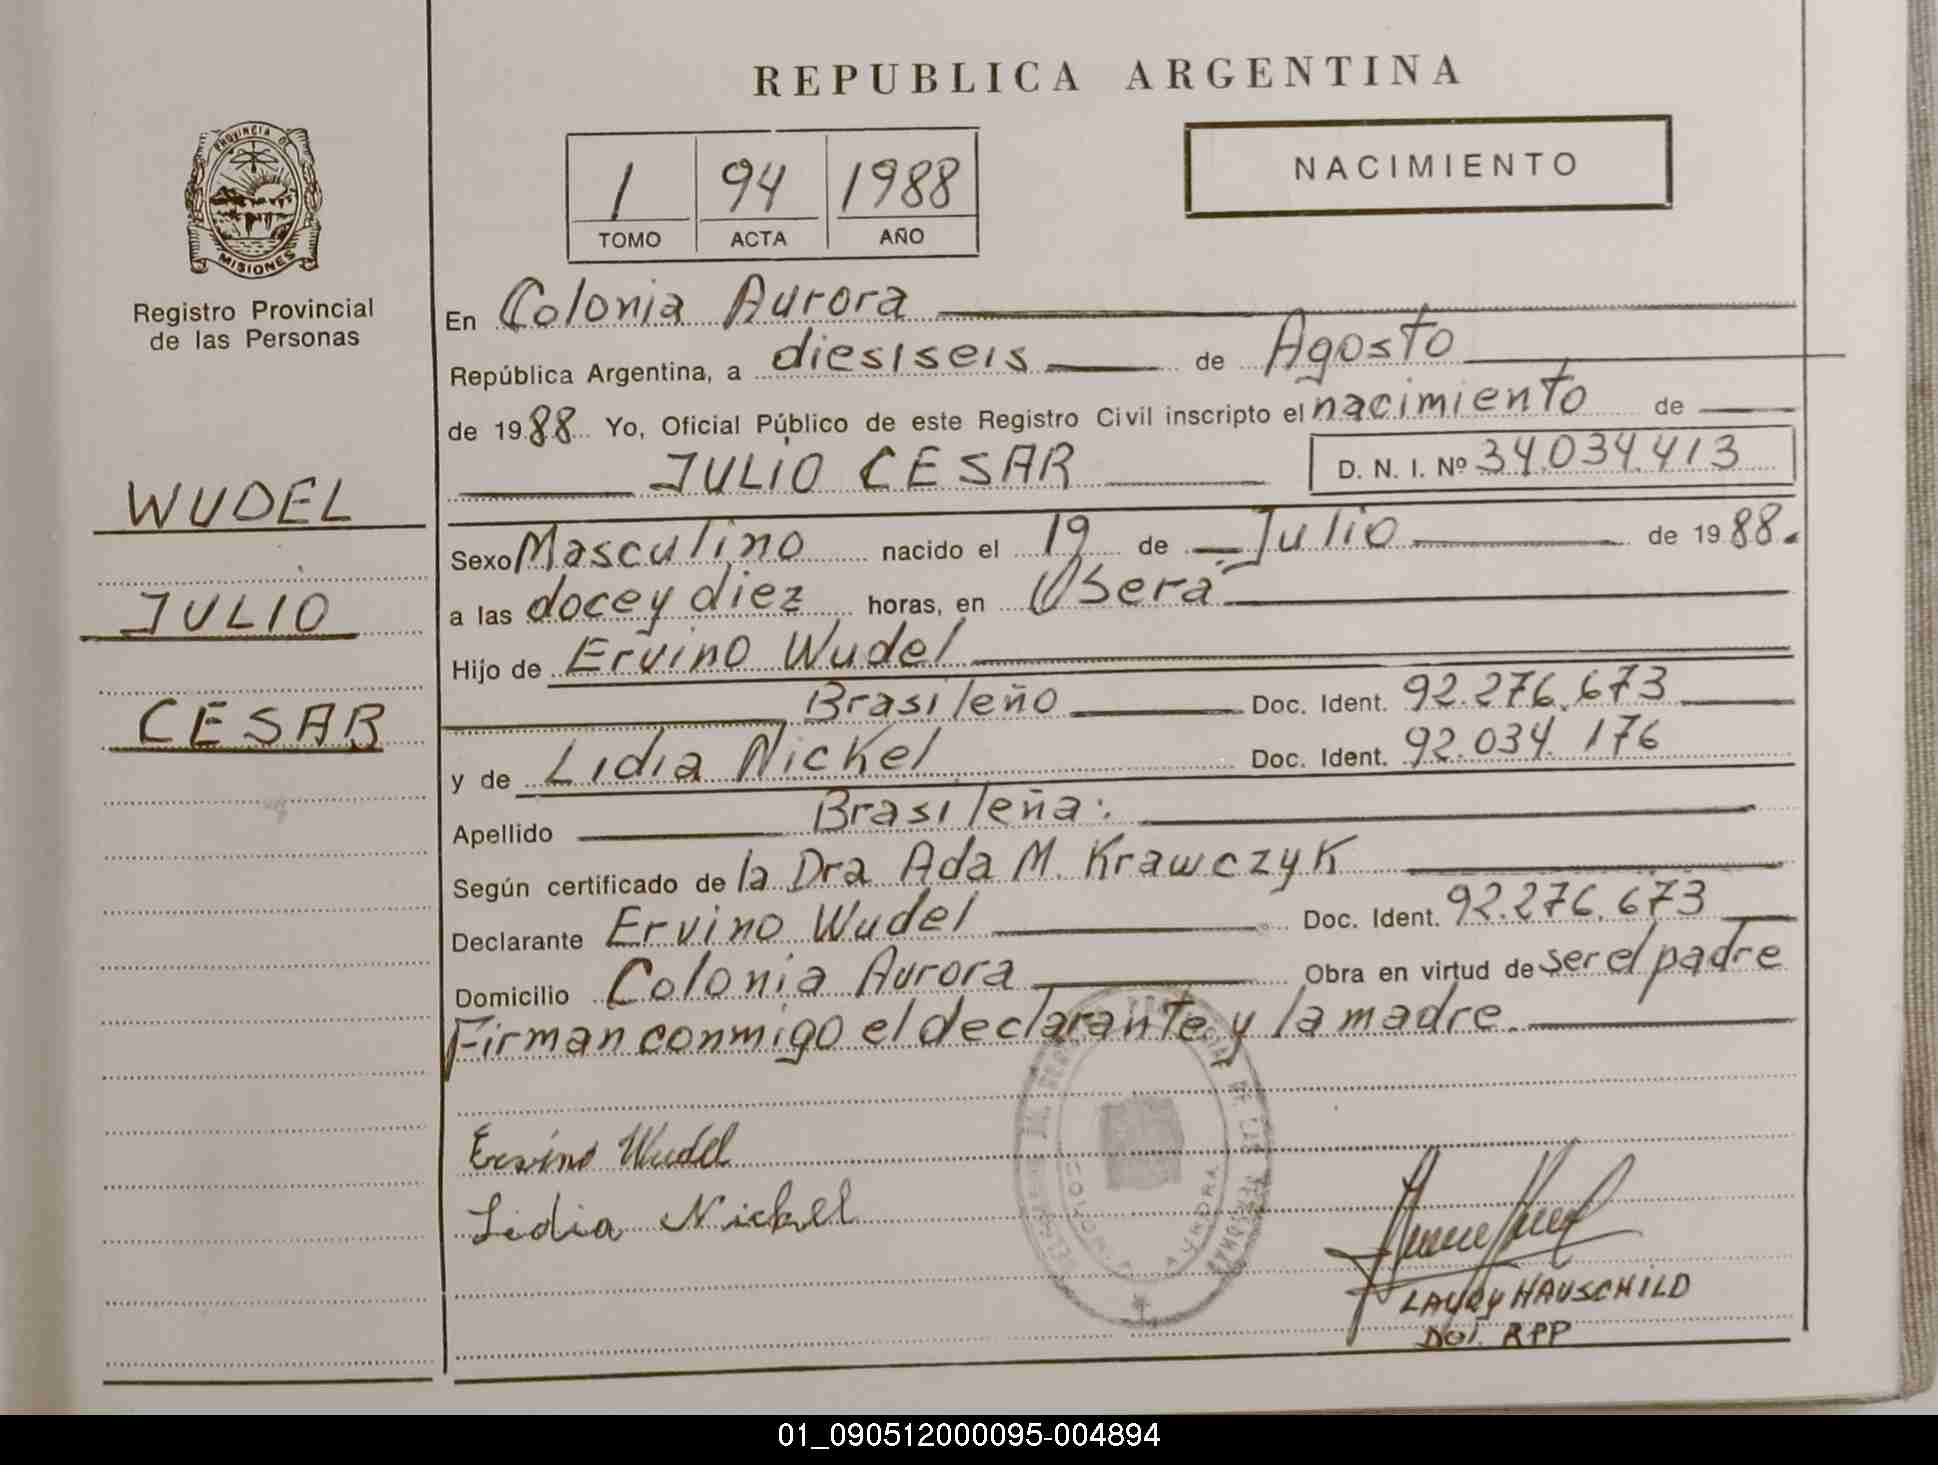 REPUBLICA ARGENTINA
PROVINCIA DE
MISIONES
Registro Provincial
de las Personas
WUDEL
JULIO
CESAR
1 94 1988
TOMO ACTA AÑO
NACIMIENTO
En Colonia Aurora
República Argentina, a diesiseis de Agosto
de 1988 Yo, Oficial Público de este Registro Civil inscripto el nacimiento de
JULIO CESAR D. N. I. Nº 34.034.413
Sexo Masculino nacido el 19 de Julio de 1988.
a las doce y diez horas, en Oberá
Hijo de Ervino Wudel
Brasileño Doc. Ident. 92.276.673
y de Lidia Nickel Doc. Ident. 92.034.176
Apellido Brasileña.
Según certificado de la Dra Ada M. Krawczyk
Declarante Ervino Wudel Doc. Ident. 92.276.673
Domicilio Colonia Aurora Obra en virtud de ser el padre
Firman conmigo el declarante y la madre.
Ervino Wudel
Lidia Nickel
COLONIA AURORA
HAUSCHILD
RPP
01_090512000095-004894